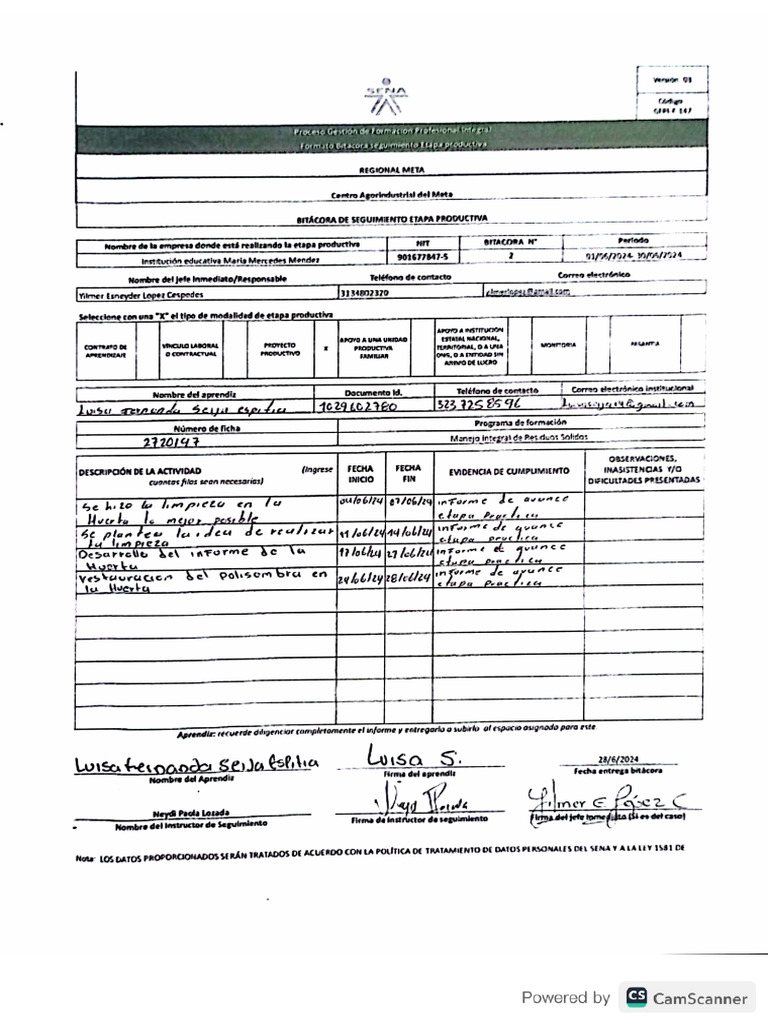 SENA
Versión 03
Código
GFPI-F-147
Proceso Gestión de Formación Profesional Integral
Formato Bitácora seguimiento Etapa productiva
REGIONAL META
Centro Agorindustrial del Meta
BITÁCORA DE SEGUIMIENTO ETAPA PRODUCTIVA
Nombre de la empresa donde está realizando la etapa productiva NIT BITACORA N° Período
Institución educativa María Mercedes Mendez 901677847-5 2 01/06/2024 30/06/2024
Nombre del jefe inmediato/Responsable Teléfono de contacto Correo electrónico
Yilmer Esneyder Lopez Cespedes 3134802320 @gmail.com
Seleccione con una "X" el tipo de modalidad de etapa productiva
CONTRATO DE APRENDIZAJE VINCULO LABORAL O CONTRACTUAL PROYECTO PRODUCTIVO X APOYO A UNA UNIDAD PRODUCTIVA FAMILIAR APOYO A INSTITUCIÓN ESTATAL NACIONAL, TERRITORIAL, O A UNA ONG, O A ENTIDAD SIN ANIMO DE LUCRO MONITORIA PASANTIA
Nombre del aprendiz Documento Id. Teléfono de contacto Correo electrónico institucional
Luisa Fernanda Seija Espitia 1029602780 323 725 8596 @gmail.com
Número de ficha Programa de formación
2720147 Manejo Integral de Residuos Solidos
DESCRIPCIÓN DE LA ACTIVIDAD (Ingrese cuantas filas sean necesarias) FECHA INICIO FECHA FIN EVIDENCIA DE CUMPLIMIENTO OBSERVACIONES, INASISTENCIAS Y/O DIFICULTADES PRESENTADAS
Se hizo la limpieza en la 04/06/24 07/06/24 informe de avance
Huerta lo mejor posible etapa practica
Se plantea la idea de realizar 11/06/24 14/06/24 informe de avance
la limpieza etapa practica
Desarrollo del informe de la 17/06/24 21/06/24 informe de avance
Huerta etapa practica
restauracion del polisombra en 24/06/24 28/06/24 informe de avance
la Huerta etapa practica
Aprendiz: recuerde diligenciar completamente el informe y entregarlo o subirlo al espacio asignado para este
Luisa Fernanda Seija Espitia Luisa S. 28/6/2024
Nombre del Aprendiz Firma del aprendiz Fecha entrega bitácora
Neydi Paola Lozada Neyd Yilmer E López C
Nombre del instructor de Seguimiento Firma de instructor de seguimiento Firma del jefe inmediato (Si es del caso)
Nota: LOS DATOS PROPORCIONADOS SERÁN TRATADOS DE ACUERDO CON LA POLÍTICA DE TRATAMIENTO DE DATOS PERSONALES DEL SENA Y A LA LEY 1581 DE
Powered by CS CamScanner